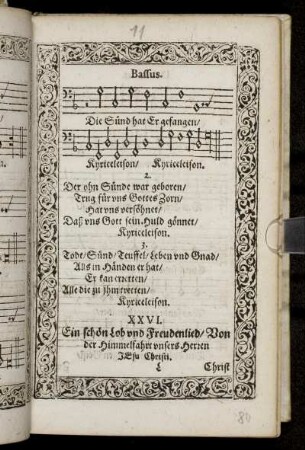 11
Bassus.
Die Sünd hat Er gefangen/
Kyrieeleison/ Kyrieeleison.
2.
Der ohn Sünde war geboren/
Trug für vns Gottes Zorn/
Hat vns versöhnet/
Daß vns Gott sein Huld gönnet/
Kyrieeleison.
3.
Todt/Sünd/Teuffel/Leben vnd Gnad/
Alls in Händen er hat/
Er kan erretten/
Alle die zu jhm tretten/
Kyrieeleison.
XXVI.
Ein schön Lob vnd Freudenlied/Von
der Himmelfahrt vnsers Herren
JEsu Christi.
L Christ
80